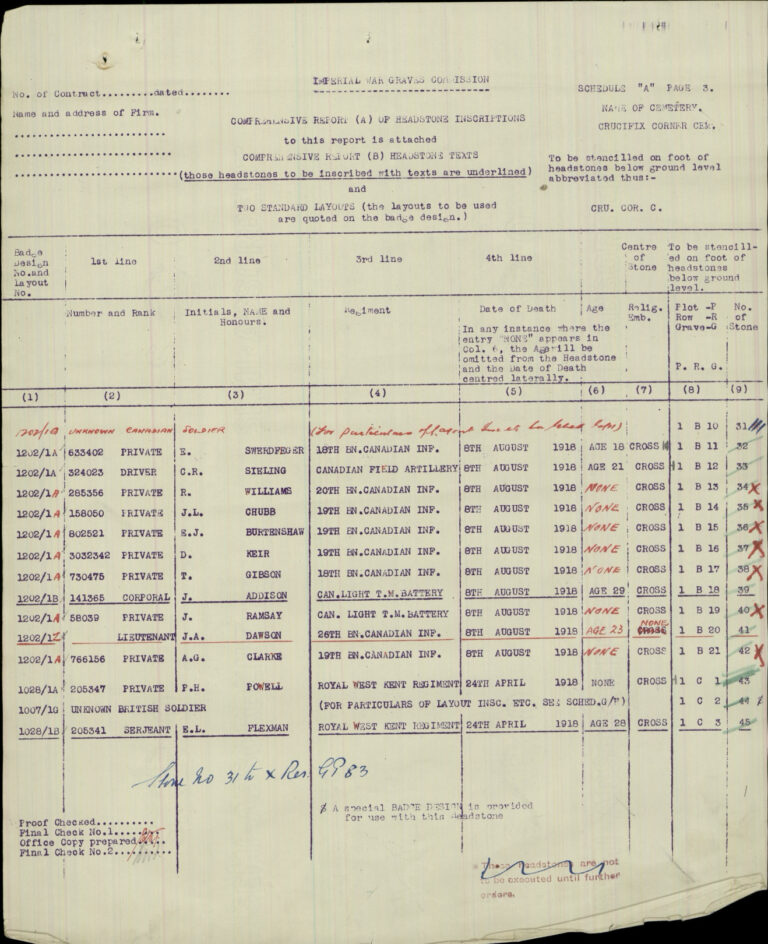 IMPERIAL WAR GRAVES COMMISSION
No. of Contract.........dated........
SCHEDULE "A" PAGE 3.
Name and address of Firm.
NAME OF CEMETERY.
COMPREHENSIVE REPORT (A) OF HEADSTONE INSCRIPTIONS
CRUCIFIX CORNER CEM.
to this report is attached
COMPREHENSIVE REPORT (B) HEADSTONE TEXTS
To be stencilled on foot of
headstones below ground level
abbreviated thus:-
(those headstones to be inscribed with texts are underlined)
and
TWO STANDARD LAYOUTS (the layouts to be used
are quoted on the badge design.)
CRU. COR. C.
Badge Design No. and Layout No.
1st line
2nd line
3rd line
4th line
Centre of Stone
To be stencill-ed on foot of headstones below ground level.
Number and Rank
Initials, NAME and Honours.
Regiment
Date of Death
Age
Relig. Emb.
Plot -P
Row -R
Grave-G
No. of Stone
In any instance where the
entry "NONE" appears in
Col. 6, the Age will be
omitted from the Headstone
and the Date of Death
centred laterally.
P. R. G.
(1) (2) (3) (4) (5) (6) (7) (8) (9)
1202/1G UNKNOWN CANADIAN SOLDIER (For particulars of 1 B 10 31
1202/1A 633402 PRIVATE E. SWERDFEGER 18TH BN.CANADIAN INF. 8TH AUGUST 1918 AGE 18 CROSS 1 B 11 32
1202/1A 324023 DRIVER C.R. SIELING CANADIAN FIELD ARTILLERY 8TH AUGUST 1918 AGE 21 CROSS 1 B 12 33
1202/1A 285356 PRIVATE R. WILLIAMS 20TH BN.CANADIAN INF. 8TH AUGUST 1918 NONE CROSS 1 B 13 34 x
1202/1A 158050 PRIVATE J.L. CHUBB 19TH BN.CANADIAN INF. 8TH AUGUST 1918 NONE CROSS 1 B 14 35 x
1202/1A 802521 PRIVATE E.J. BURTENSHAW 19TH BN.CANADIAN INF. 8TH AUGUST 1918 NONE CROSS 1 B 15 36 x
1202/1A 3032342 PRIVATE D. KEIR 19TH BN.CANADIAN INF. 8TH AUGUST 1918 NONE CROSS 1 B 16 37 x
1202/1A 730475 PRIVATE T. GIBSON 18TH BN.CANADIAN INF. 8TH AUGUST 1918 NONE CROSS 1 B 17 38 x
1202/1B 141365 CORPORAL J. ADDISON CAN.LIGHT T.M.BATTERY 8TH AUGUST 1918 AGE 29 CROSS 1 B 18 39
1202/1A 58039 PRIVATE J. RAMSAY CAN. LIGHT T.M.BATTERY 8TH AUGUST 1918 NONE CROSS 1 B 19 40 x
1202/1Z LIEUTENANT J.A. DAWSON 26TH BN.CANADIAN INF. 8TH AUGUST 1918 AGE 23 NONE CROSS 1 B 20 41
1202/1A 766156 PRIVATE A.G. CLARKE 19TH BN.CANADIAN INF. 8TH AUGUST 1918 NONE CROSS 1 B 21 42 x
1028/1A 205347 PRIVATE P.H. POWELL ROYAL WEST KENT REGIMENT 24TH APRIL 1918 NONE CROSS 1 C 1 43
1007/1G UNKNOWN BRITISH SOLDIER (FOR PARTICULARS OF LAYOUT INSC. ETC. SEE SCHED.G/F) 1 C 2 44
1028/1B 205341 SERJEANT E.L. FLEXMAN ROYAL WEST KENT REGIMENT 24TH APRIL 1918 AGE 28 CROSS 1 C 3 45
Stone No 31 to x Res GP 83
≠ A special BADGE DESIGN is provided
for use with this Headstone
Proof Checked..........
Final Check No.1........
Office Copy prepared....
Final Check No.2........
These headstones are not
to be executed until further
orders.